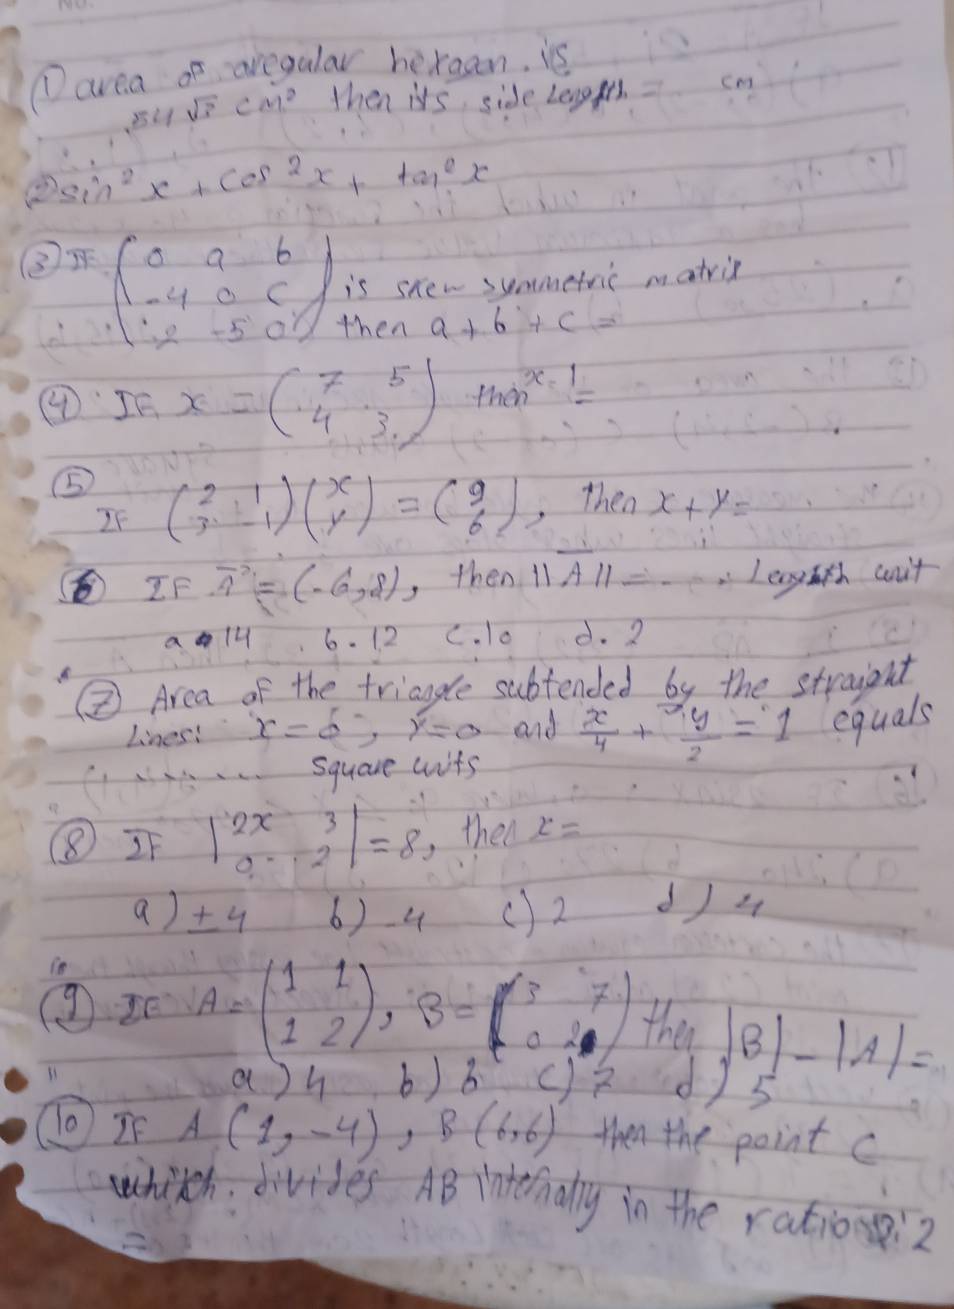 ① area of aregular hexagon. is
54√3 cm² then its side Length = cm
② sin²x + cos²x + tan²x
③ IF ( 0 a b
-4 0 c ) is skew symmetric matrix
2 -5 0 then a + b + c =
④ IF x = ( 7 5
4 3 ) then x⁻¹ =
⑤
IF ( 2 1
3 -1 ) ( x
y ) = ( 9
6 ), then x + y =
⑥ IF A = (-6,8), then ||A|| = .... Length unit
a. 14 b. 12 c. 10 d. 2
⑦ Area of the triangle subtended by the straight
Lines: x = 0, y = 0 and x/4 + y/2 = 1 equals
............ square units
⑧ IF | 2x 3
0 2 | = 8, then x =
a) ± 4 b) -4 c) 2 d) 4
⑨ IF A = ( 1 1
1 2 ), B = ( 3 7
0 2 ) then |B| - |A| =
a) 4 b) 6 c) 7 d) 5
⑩ IF A (1, -4), B (6,6) then the point C
which divides AB internally in the ratio : 2
=